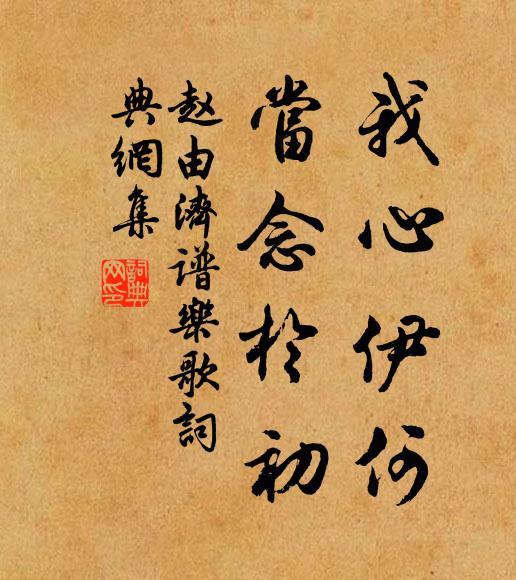 我心伊何
當念於初
赵由濟譜樂歌詞
典網集
詞典
网印